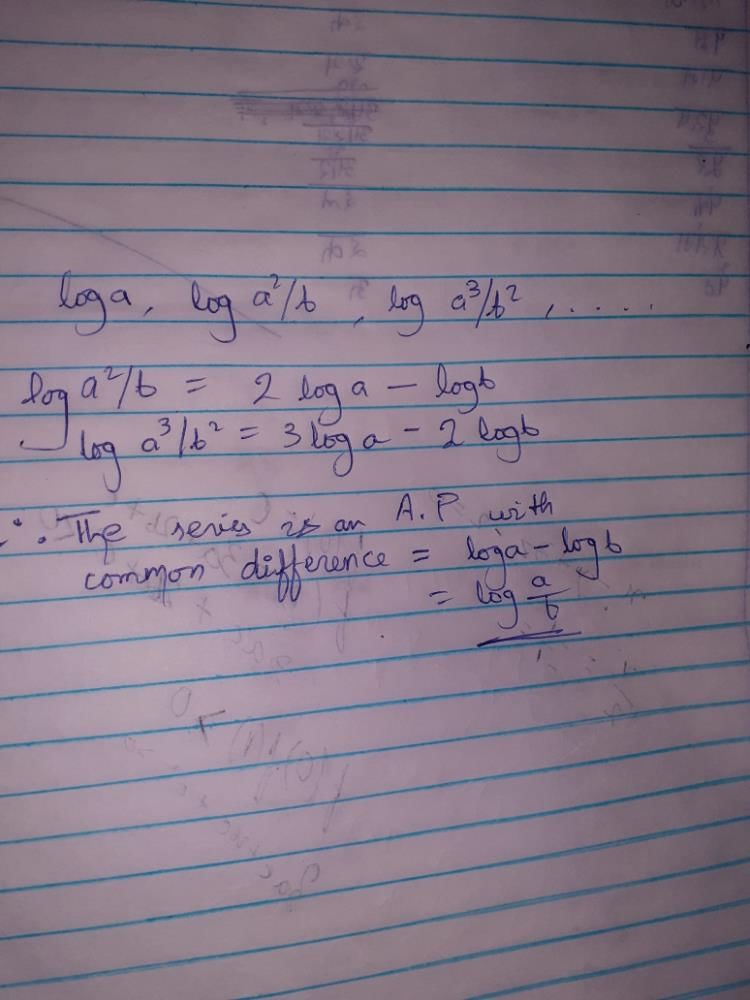 log a, log a²/b, log a³/b², .....
log a²/b = 2 log a - log b
log a³/b² = 3 log a - 2 log b
∴ The series is an A.P with
common difference = log a - log b
= log a/b